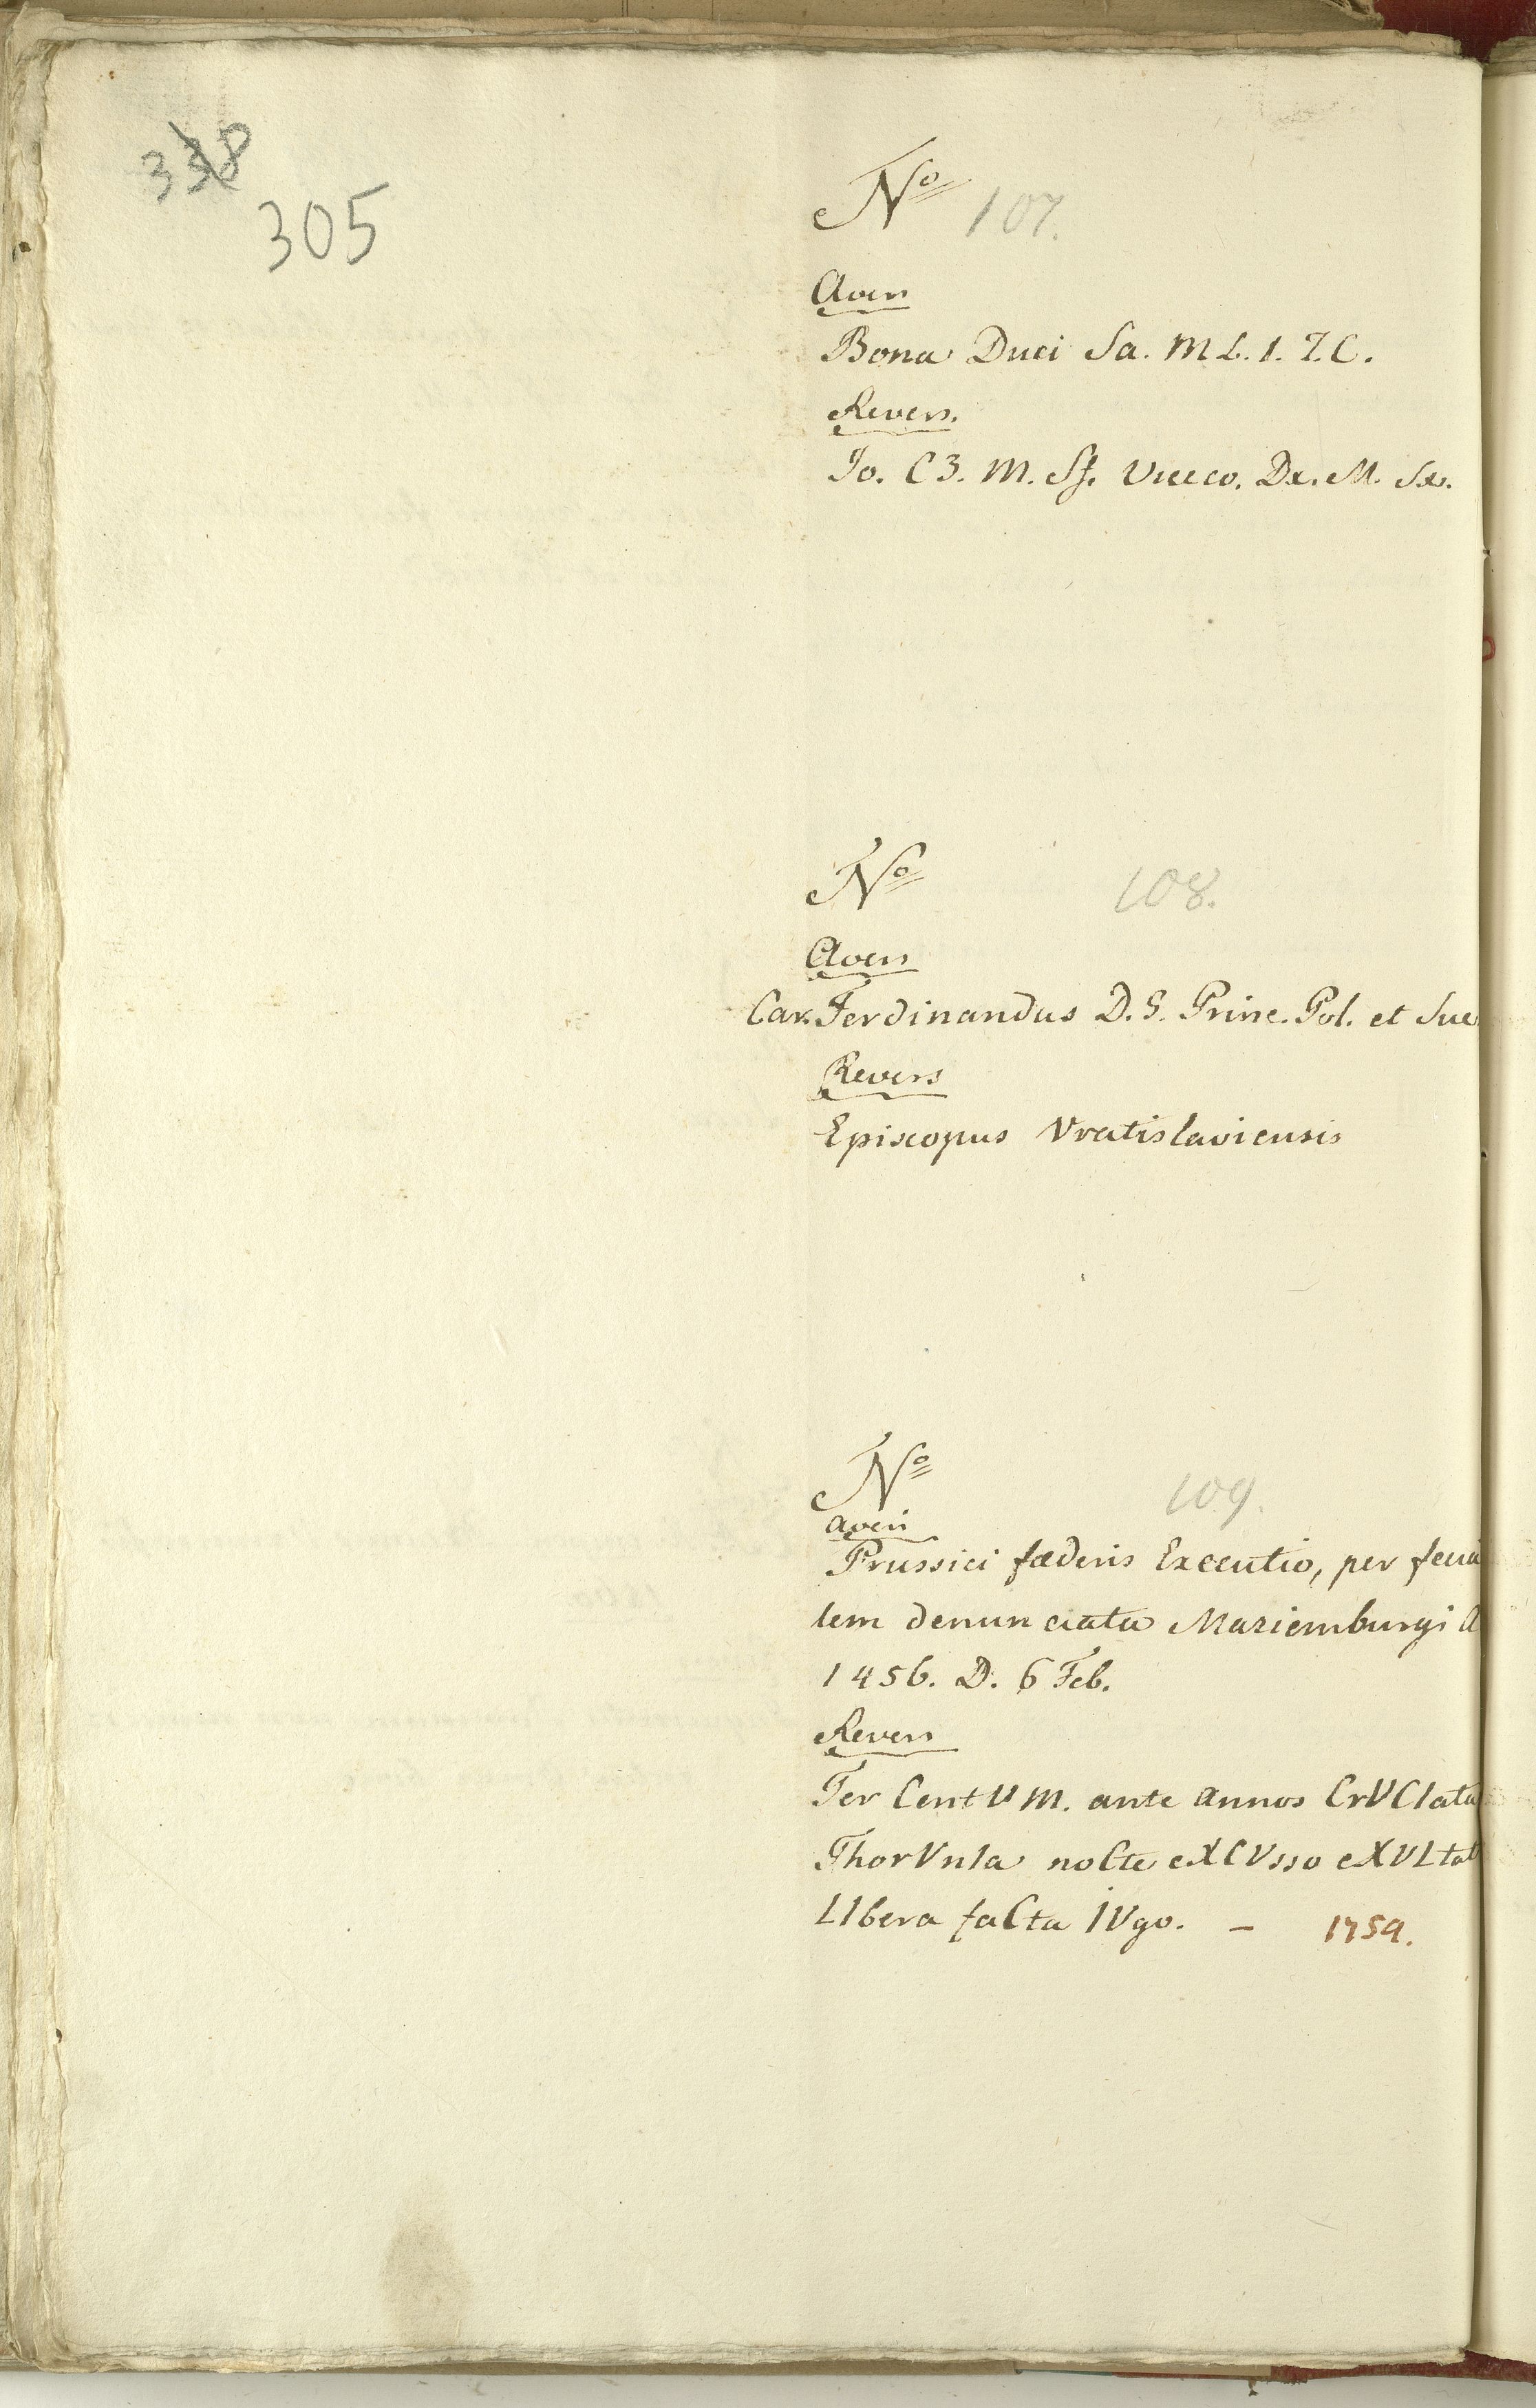 338
305
No 107.
Avers
Bona Duci Sa. M L. 1. Z. C.
Revers.
Jo. C3. M. Sf. Viceco. Dx. M. Sx.
No 108.
Avers
Car. Ferdinandus D. G. Princ. Pol. et Sue
Revers
Episcopus Vratislaviensis
No 109.
Avers
Prussici fœderis Executio, per fecia
lem denunciata Mariemburgi A
1456. D. 6 Feb.
Revers
Ter CentVM. ante annos CrVCIata
ThorVnIa noCte eXCVsso eXVLtat
LIbera faCta IVgo. – 1754.